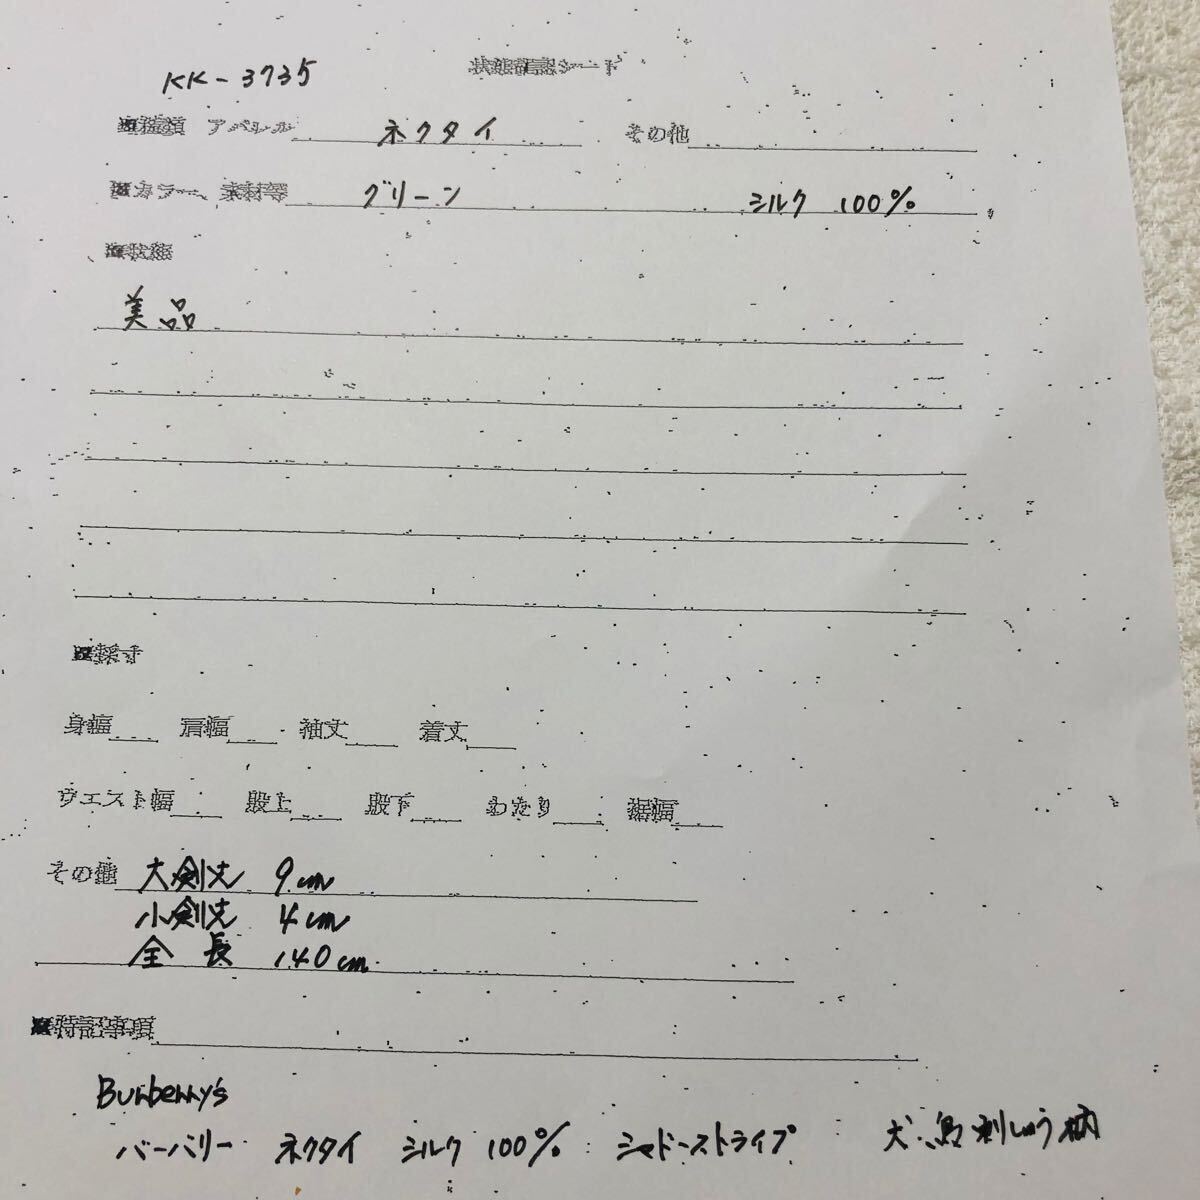 KK-3735
状態確認シート
※種類 アパレル ネクタイ その他
※カラー、素材等 グリーン シルク 100%
※状態
美品
※採寸
身幅 肩幅 袖丈 着丈
ウエスト幅 股上 股下 わたり 裾幅
その他 大剣丈 9cm
小剣丈 4cm
全長 140cm
※特記事項
Burberry's
バーバリー ネクタイ シルク 100% シャドーストライプ 犬、鳥刺しゅう柄